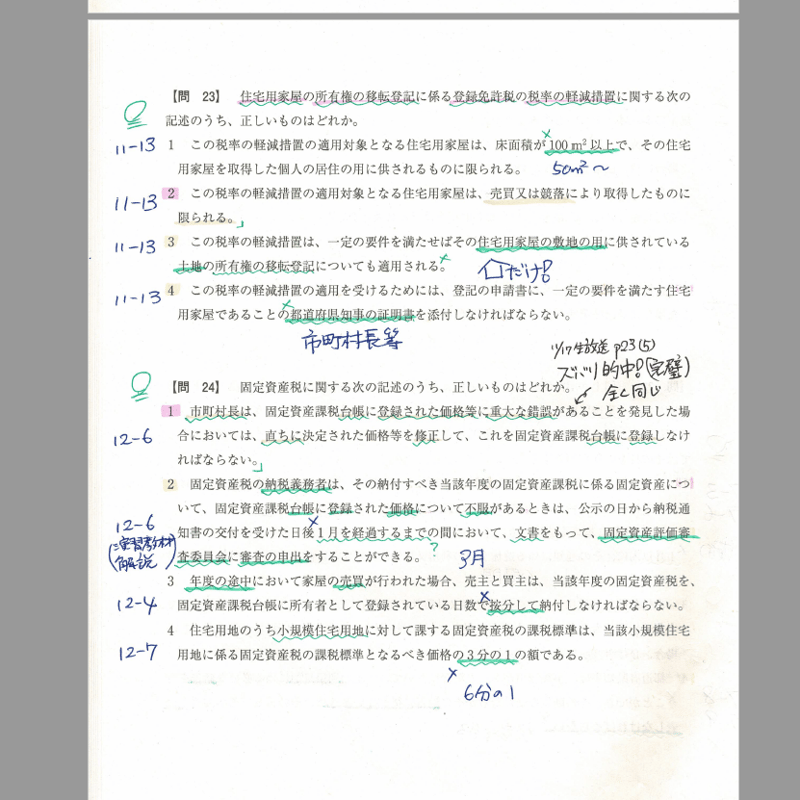 【問 23】 住宅用家屋の所有権の移転登記に係る登録免許税の税率の軽減措置に関する次の
記述のうち、正しいものはどれか。
11-13 1 この税率の軽減措置の適用対象となる住宅用家屋は、床面積が100㎡以上で、その住宅
用家屋を取得した個人の居住の用に供されるものに限られる。 50㎡〜
11-13 2 この税率の軽減措置の適用対象となる住宅用家屋は、売買又は競落により取得したものに
限られる。
11-13 3 この税率の軽減措置は、一定の要件を満たせばその住宅用家屋の敷地の用に供されている
土地の所有権の移転登記についても適用される。 だけ!
11-13 4 この税率の軽減措置の適用を受けるためには、登記の申請書に、一定の要件を満たす住宅
用家屋であることの都道府県知事の証明書を添付しなければならない。
市町村長等
11/17生放送 p23(5)
ズバリ的中!(完璧)
全く同じ
【問 24】 固定資産税に関する次の記述のうち、正しいものはどれか。
1 市町村長は、固定資産課税台帳に登録された価格等に重大な錯誤があることを発見した場
12-6 合においては、直ちに決定された価格等を修正して、これを固定資産課税台帳に登録しなけ
ればならない。
2 固定資産税の納税義務者は、その納付すべき当該年度の固定資産課税に係る固定資産につ
いて、固定資産課税台帳に登録された価格について不服があるときは、公示の日から納税通
12-6 知書の交付を受けた日後1月を経過するまでの間において、文書をもって、固定資産評価審
(演習教材解説) 査委員会に審査の申出をすることができる。 ? 3月
3 年度の途中において家屋の売買が行われた場合、売主と買主は、当該年度の固定資産税を、
12-4 固定資産課税台帳に所有者として登録されている日数で按分して納付しなければならない。
4 住宅用地のうち小規模住宅用地に対して課する固定資産税の課税標準は、当該小規模住宅
12-7 用地に係る固定資産税の課税標準となるべき価格の3分の1の額である。
6分の1